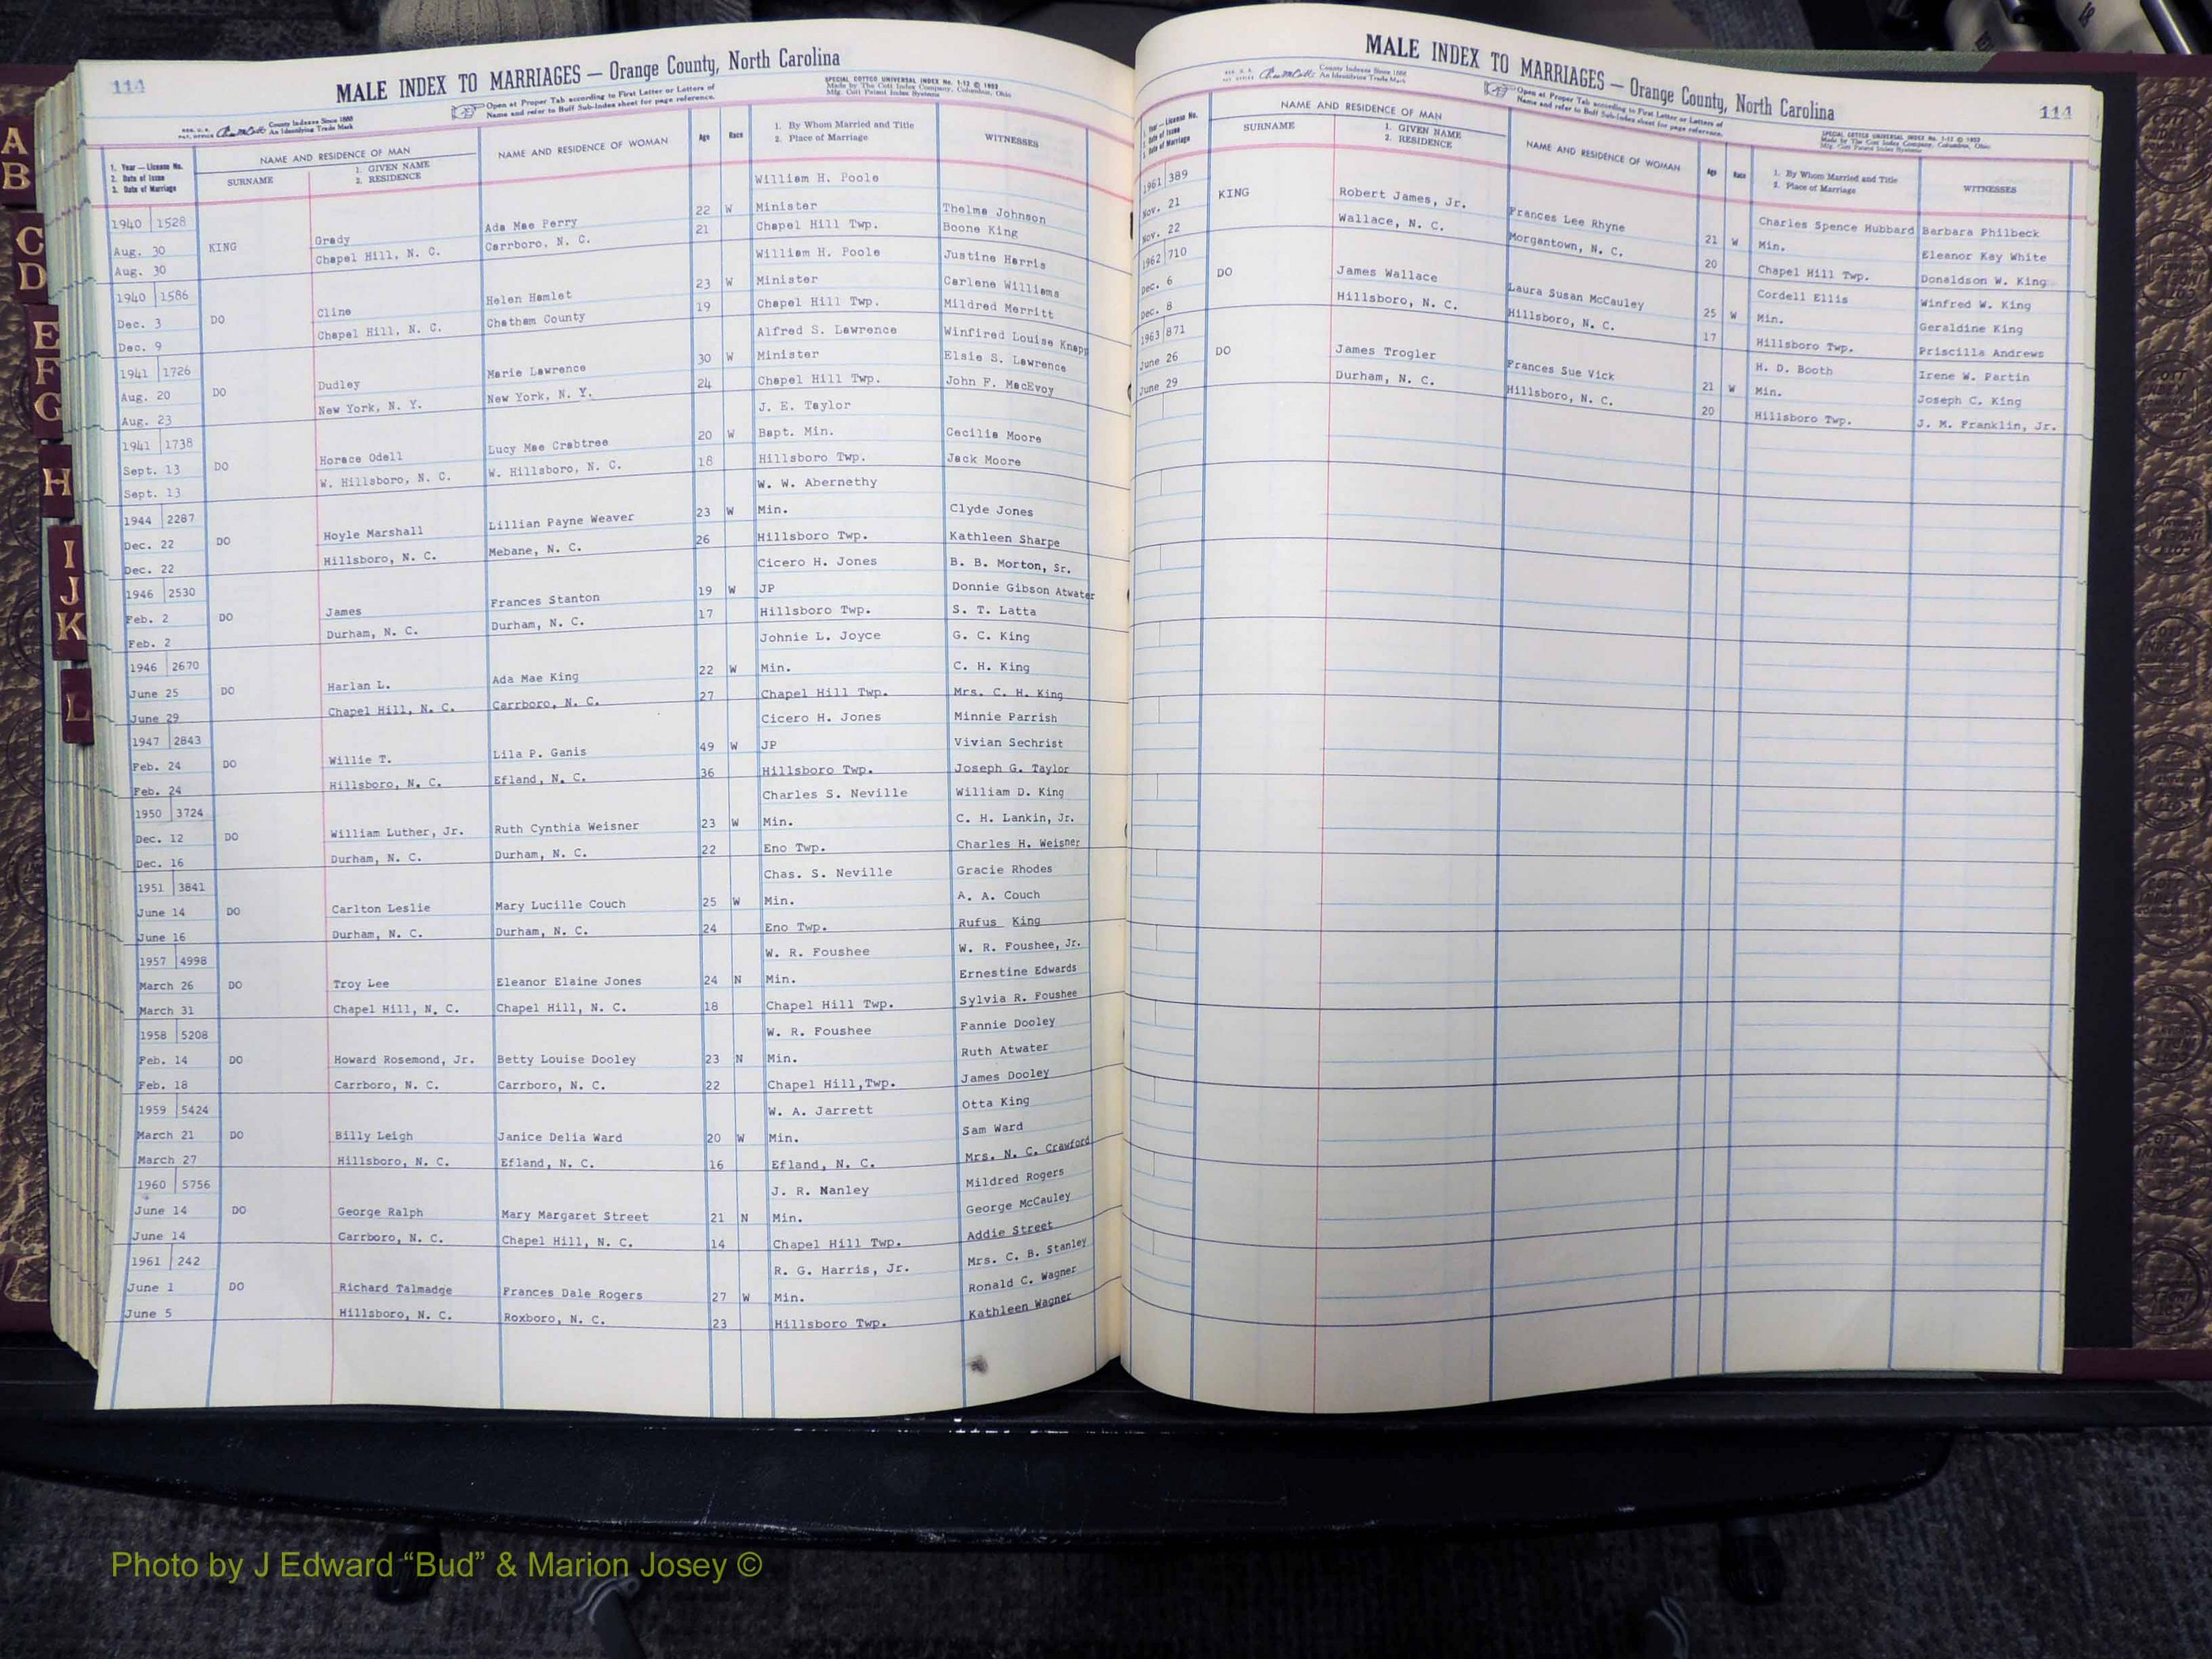 114
MALE INDEX TO MARRIAGES — Orange County, North Carolina
County Indexes Since 1888
An Identifying Trade Mark
Open at Proper Tab according to First Letter or Letters of
Name and refer to Buff Sub-Index sheet for page reference.
SPECIAL COTTCO UNIVERSAL INDEX No. 1-12 © 1952
Made by The Cott Index Company, Columbus, Ohio
Mfg. Cott Patent Index Systems
1. Year — License No.
2. Date of Issue
3. Date of Marriage
NAME AND RESIDENCE OF MAN
SURNAME
1. GIVEN NAME
2. RESIDENCE
NAME AND RESIDENCE OF WOMAN
Age
Race
1. By Whom Married and Title
2. Place of Marriage
WITNESSES
William H. Poole
1940 1528 Ada Mae Perry 22 W Minister Thelma Johnson
Aug. 30 KING Grady Carrboro, N. C. 21 Chapel Hill Twp. Boone King
Aug. 30 Chapel Hill, N. C. William H. Poole Justine Harris
1940 1586 Helen Hamlet 23 W Minister Carlene Williams
Dec. 3 DO Cline Chatham County 19 Chapel Hill Twp. Mildred Merritt
Dec. 9 Chapel Hill, N. C. Alfred S. Lawrence Winfired Louise Knapp
1941 1726 Marie Lawrence 30 W Minister Elsie S. Lawrence
Aug. 20 DO Dudley New York, N. Y. 24 Chapel Hill Twp. John F. MacEvoy
Aug. 23 New York, N. Y. J. E. Taylor
1941 1738 Lucy Mae Crabtree 20 W Bapt. Min. Cecilia Moore
Sept. 13 DO Horace Odell W. Hillsboro, N. C. 18 Hillsboro Twp. Jack Moore
Sept. 13 W. Hillsboro, N. C. W. W. Abernethy
1944 2287 Lillian Payne Weaver 23 W Min. Clyde Jones
Dec. 22 DO Hoyle Marshall Mebane, N. C. 26 Hillsboro Twp. Kathleen Sharpe
Dec. 22 Hillsboro, N. C. Cicero H. Jones B. B. Morton, Sr.
1946 2530 Frances Stanton 19 W JP Donnie Gibson Atwater
Feb. 2 DO James Durham, N. C. 17 Hillsboro Twp. S. T. Latta
Feb. 2 Durham, N. C. Johnie L. Joyce G. C. King
1946 2670 Ada Mae King 22 W Min. C. H. King
June 25 DO Harlan L. Carrboro, N. C. 27 Chapel Hill Twp. Mrs. C. H. King
June 29 Chapel Hill, N. C. Cicero H. Jones Minnie Parrish
1947 2843 Lila P. Ganis 49 W JP Vivian Sechrist
Feb. 24 DO Willie T. Efland, N. C. 36 Hillsboro Twp. Joseph G. Taylor
Feb. 24 Hillsboro, N. C. Charles S. Neville William D. King
1950 3724 C. H. Lankin, Jr.
Dec. 12 DO William Luther, Jr. Ruth Cynthia Weisner 23 W Min.
Dec. 16 Durham, N. C. Durham, N. C. 22 Eno Twp. Charles H. Weisner
1951 3841 Chas. S. Neville Gracie Rhodes
June 14 DO Carlton Leslie Mary Lucille Couch 25 W Min. A. A. Couch
June 16 Durham, N. C. Durham, N. C. 24 Eno Twp. Rufus King
1957 4998 W. R. Foushee W. R. Foushee, Jr.
March 26 DO Troy Lee Eleanor Elaine Jones 24 N Min. Ernestine Edwards
March 31 Chapel Hill, N. C. Chapel Hill, N. C. 18 Chapel Hill Twp. Sylvia R. Foushee
1958 5208 W. R. Foushee Fannie Dooley
Feb. 14 DO Howard Rosemond, Jr. Betty Louise Dooley 23 N Min. Ruth Atwater
Feb. 18 Carrboro, N. C. Carrboro, N. C. 22 Chapel Hill,Twp. James Dooley
1959 5424 W. A. Jarrett Otta King
March 21 DO Billy Leigh Janice Delia Ward 20 W Min. Sam Ward
March 27 Hillsboro, N. C. Efland, N. C. 16 Efland, N. C. Mrs. N. C. Crawford
1960 5756 J. R. Manley Mildred Rogers
June 14 DO George Ralph Mary Margaret Street 21 N Min. George McCauley
June 14 Carrboro, N. C. Chapel Hill, N. C. 14 Chapel Hill Twp. Addie Street
1961 242 R. G. Harris, Jr. Mrs. C. B. Stanley
June 1 DO Richard Talmadge Frances Dale Rogers 27 W Min. Ronald C. Wagner
June 5 Hillsboro, N. C. Roxboro, N. C. 23 Hillsboro Twp. Kathleen Wagner
MALE INDEX TO MARRIAGES — Orange County, North Carolina
114
County Indexes Since 1888
An Identifying Trade Mark
Open at Proper Tab according to First Letter or Letters of
Name and refer to Buff Sub-Index sheet for page reference.
SPECIAL COTTCO UNIVERSAL INDEX No. 1-12 © 1952
Made by The Cott Index Company, Columbus, Ohio
Mfg. Cott Patent Index Systems
1. Year — License No.
2. Date of Issue
3. Date of Marriage
NAME AND RESIDENCE OF MAN
SURNAME
1. GIVEN NAME
2. RESIDENCE
NAME AND RESIDENCE OF WOMAN
Age
Race
1. By Whom Married and Title
2. Place of Marriage
WITNESSES
1961 389 Charles Spence Hubbard Barbara Philbeck
Nov. 21 KING Robert James, Jr. Frances Lee Rhyne 21 W Min. Eleanor Kay White
Nov. 22 Wallace, N. C. Morgantown, N. C. 20 Chapel Hill Twp. Donaldson W. King
1962 710 Cordell Ellis Winfred W. King
Dec. 6 DO James Wallace Laura Susan McCauley 25 W Min. Geraldine King
Dec. 8 Hillsboro, N. C. Hillsboro, N. C. 17 Hillsboro Twp. Priscilla Andrews
1963 871 H. D. Booth Irene W. Partin
June 26 DO James Trogler Frances Sue Vick 21 W Min. Joseph C. King
June 29 Durham, N. C. Hillsboro, N. C. 20 Hillsboro Twp. J. M. Franklin, Jr.
A
B
C
D
E
F
G
H
I
J
K
L
Photo by J Edward “Bud” & Marion Josey ©